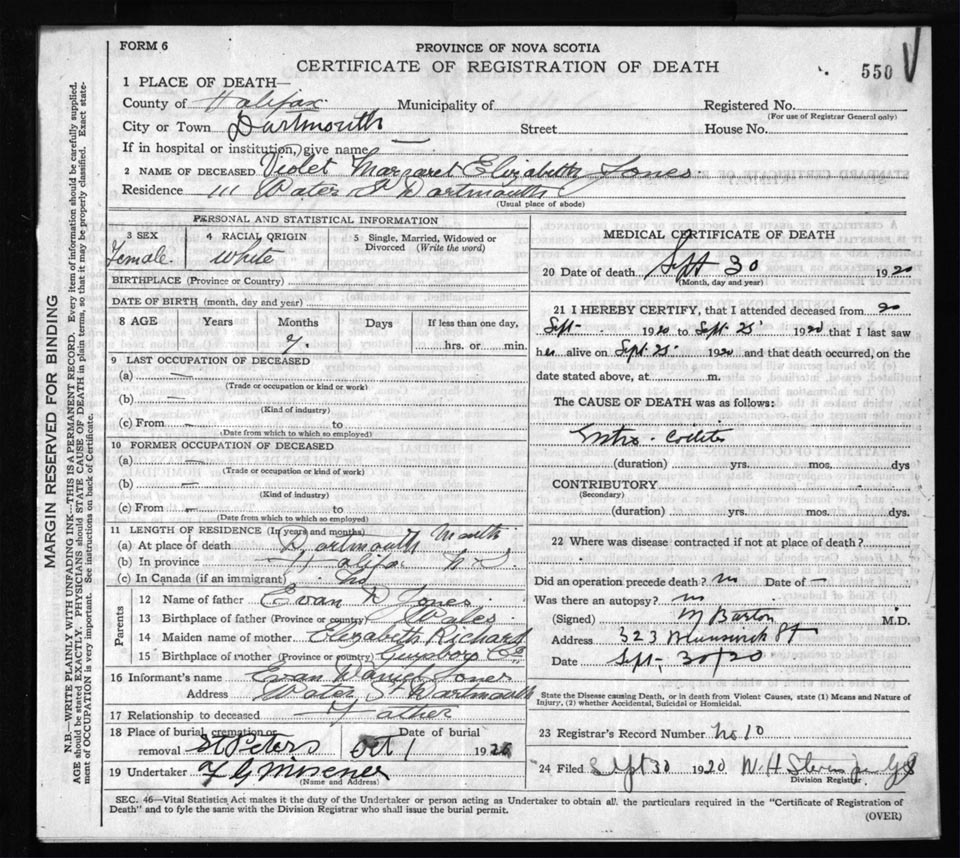 FORM 6
PROVINCE OF NOVA SCOTIA
CERTIFICATE OF REGISTRATION OF DEATH
550
1 PLACE OF DEATH—
County of Halifax Municipality of Registered No.
(For use of Registrar General only)
City or Town Dartmouth Street House No.
If in hospital or institution, give name —
2 NAME OF DECEASED Violet Margaret Elizabeth Jones
Residence 111 Water St Dartmouth
(Usual place of abode)
PERSONAL AND STATISTICAL INFORMATION
3 SEX 4 RACIAL ORIGIN 5 Single, Married, Widowed or Divorced (Write the word)
Female. White
BIRTHPLACE (Province or Country)
DATE OF BIRTH (month, day and year)
8 AGE Years Months Days If less than one day,
7. hrs. or min.
9 LAST OCCUPATION OF DECEASED
(a) —
(Trade or occupation or kind of work)
(b) —
(Kind of industry)
(c) From — to
(Date from which to which so employed)
10 FORMER OCCUPATION OF DECEASED
(a) —
(Trade or occupation or kind of work)
(b) —
(Kind of industry)
(c) From — to
(Date from which to which so employed)
11 LENGTH OF RESIDENCE (In years and months)
(a) At place of death Dartmouth
(b) In province Halifax N S.
(c) In Canada (if an immigrant)
Parents
12 Name of father Evan D Jones
13 Birthplace of father (Province or country) Wales
14 Maiden name of mother Elizabeth Richard
15 Birthplace of mother (Province or country) Guysboro Co
16 Informant's name Evan Daniel Jones
Address Water St Dartmouth
17 Relationship to deceased Father
18 Place of burial, cremation or removal St Peters Date of burial Oct 1 1920
19 Undertaker F G Misener
(Name and Address)
MEDICAL CERTIFICATE OF DEATH
20 Date of death Sept 30 1920
(Month, day and year)
21 I HEREBY CERTIFY, that I attended deceased from 20
Sept- 1920 to Sept 25 1920 that I last saw
her alive on Sept 25 1920 and that death occurred, on the
date stated above, at m.
The CAUSE OF DEATH was as follows:
(duration) yrs. mos. dys
CONTRIBUTORY
(Secondary)
(duration) yrs. mos. dys.
22 Where was disease contracted if not at place of death?
Did an operation precede death? no Date of —
Was there an autopsy? no
(Signed) M Barton M.D.
Address 323 Brunswick St
Date Sept- 30/20
State the Disease causing Death, or in death from Violent Causes, state (1) Means and Nature of
Injury, (2) whether Accidental, Suicidal or Homicidal.
23 Registrar's Record Number No 10
24 Filed Sept 30 1920 W. H. Stevens
Division Registrar
SEC. 46—Vital Statistics Act makes it the duty of the Undertaker or person acting as Undertaker to obtain all the particulars required in the "Certificate of Registration of
Death" and to fyle the same with the Division Registrar who shall issue the burial permit.
(OVER)
MARGIN RESERVED FOR BINDING
N.B—WRITE PLAINLY WITH UNFADING INK—THIS IS A PERMANENT RECORD. Every item of information should be carefully supplied.
AGE should be stated EXACTLY. PHYSICIANS should STATE CAUSE OF DEATH in plain terms, so that it may be properly classified. Exact state-
ment of OCCUPATION is very important. See instructions on back of Certificate.